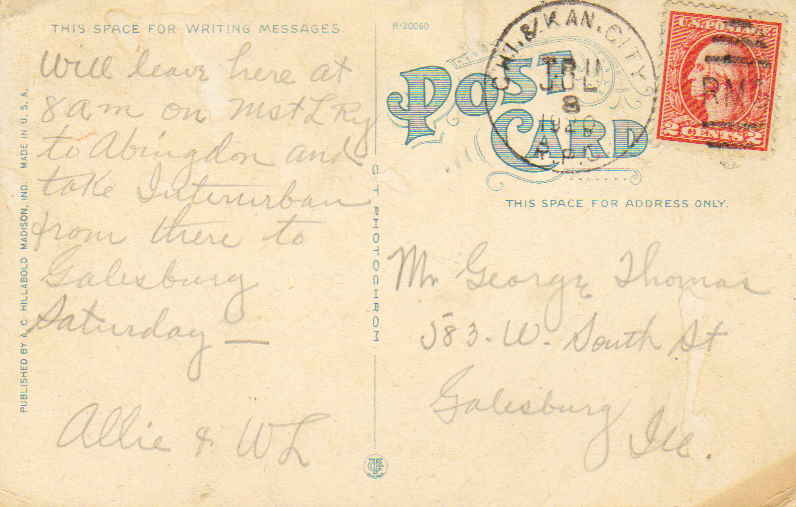 THIS SPACE FOR WRITING MESSAGES
R-20060
Will leave here at
8 am on MstL Ry
to Abingdon and
take Interurban
from there to
Galesburg
Saturday —
Allie & WL
PUBLISHED BY A.C. HILLABOLD MADISON, IND. MADE IN U.S.A.
C T PHOTOCHROM
POST CARD
CHI. & KAN. CITY
JUL
8
1920
R.P.O.
U.S. POSTAGE
RM
2 CENTS 2
THIS SPACE FOR ADDRESS ONLY.
Mr George Thomas
583. W. South St
Galesburg
Ill.